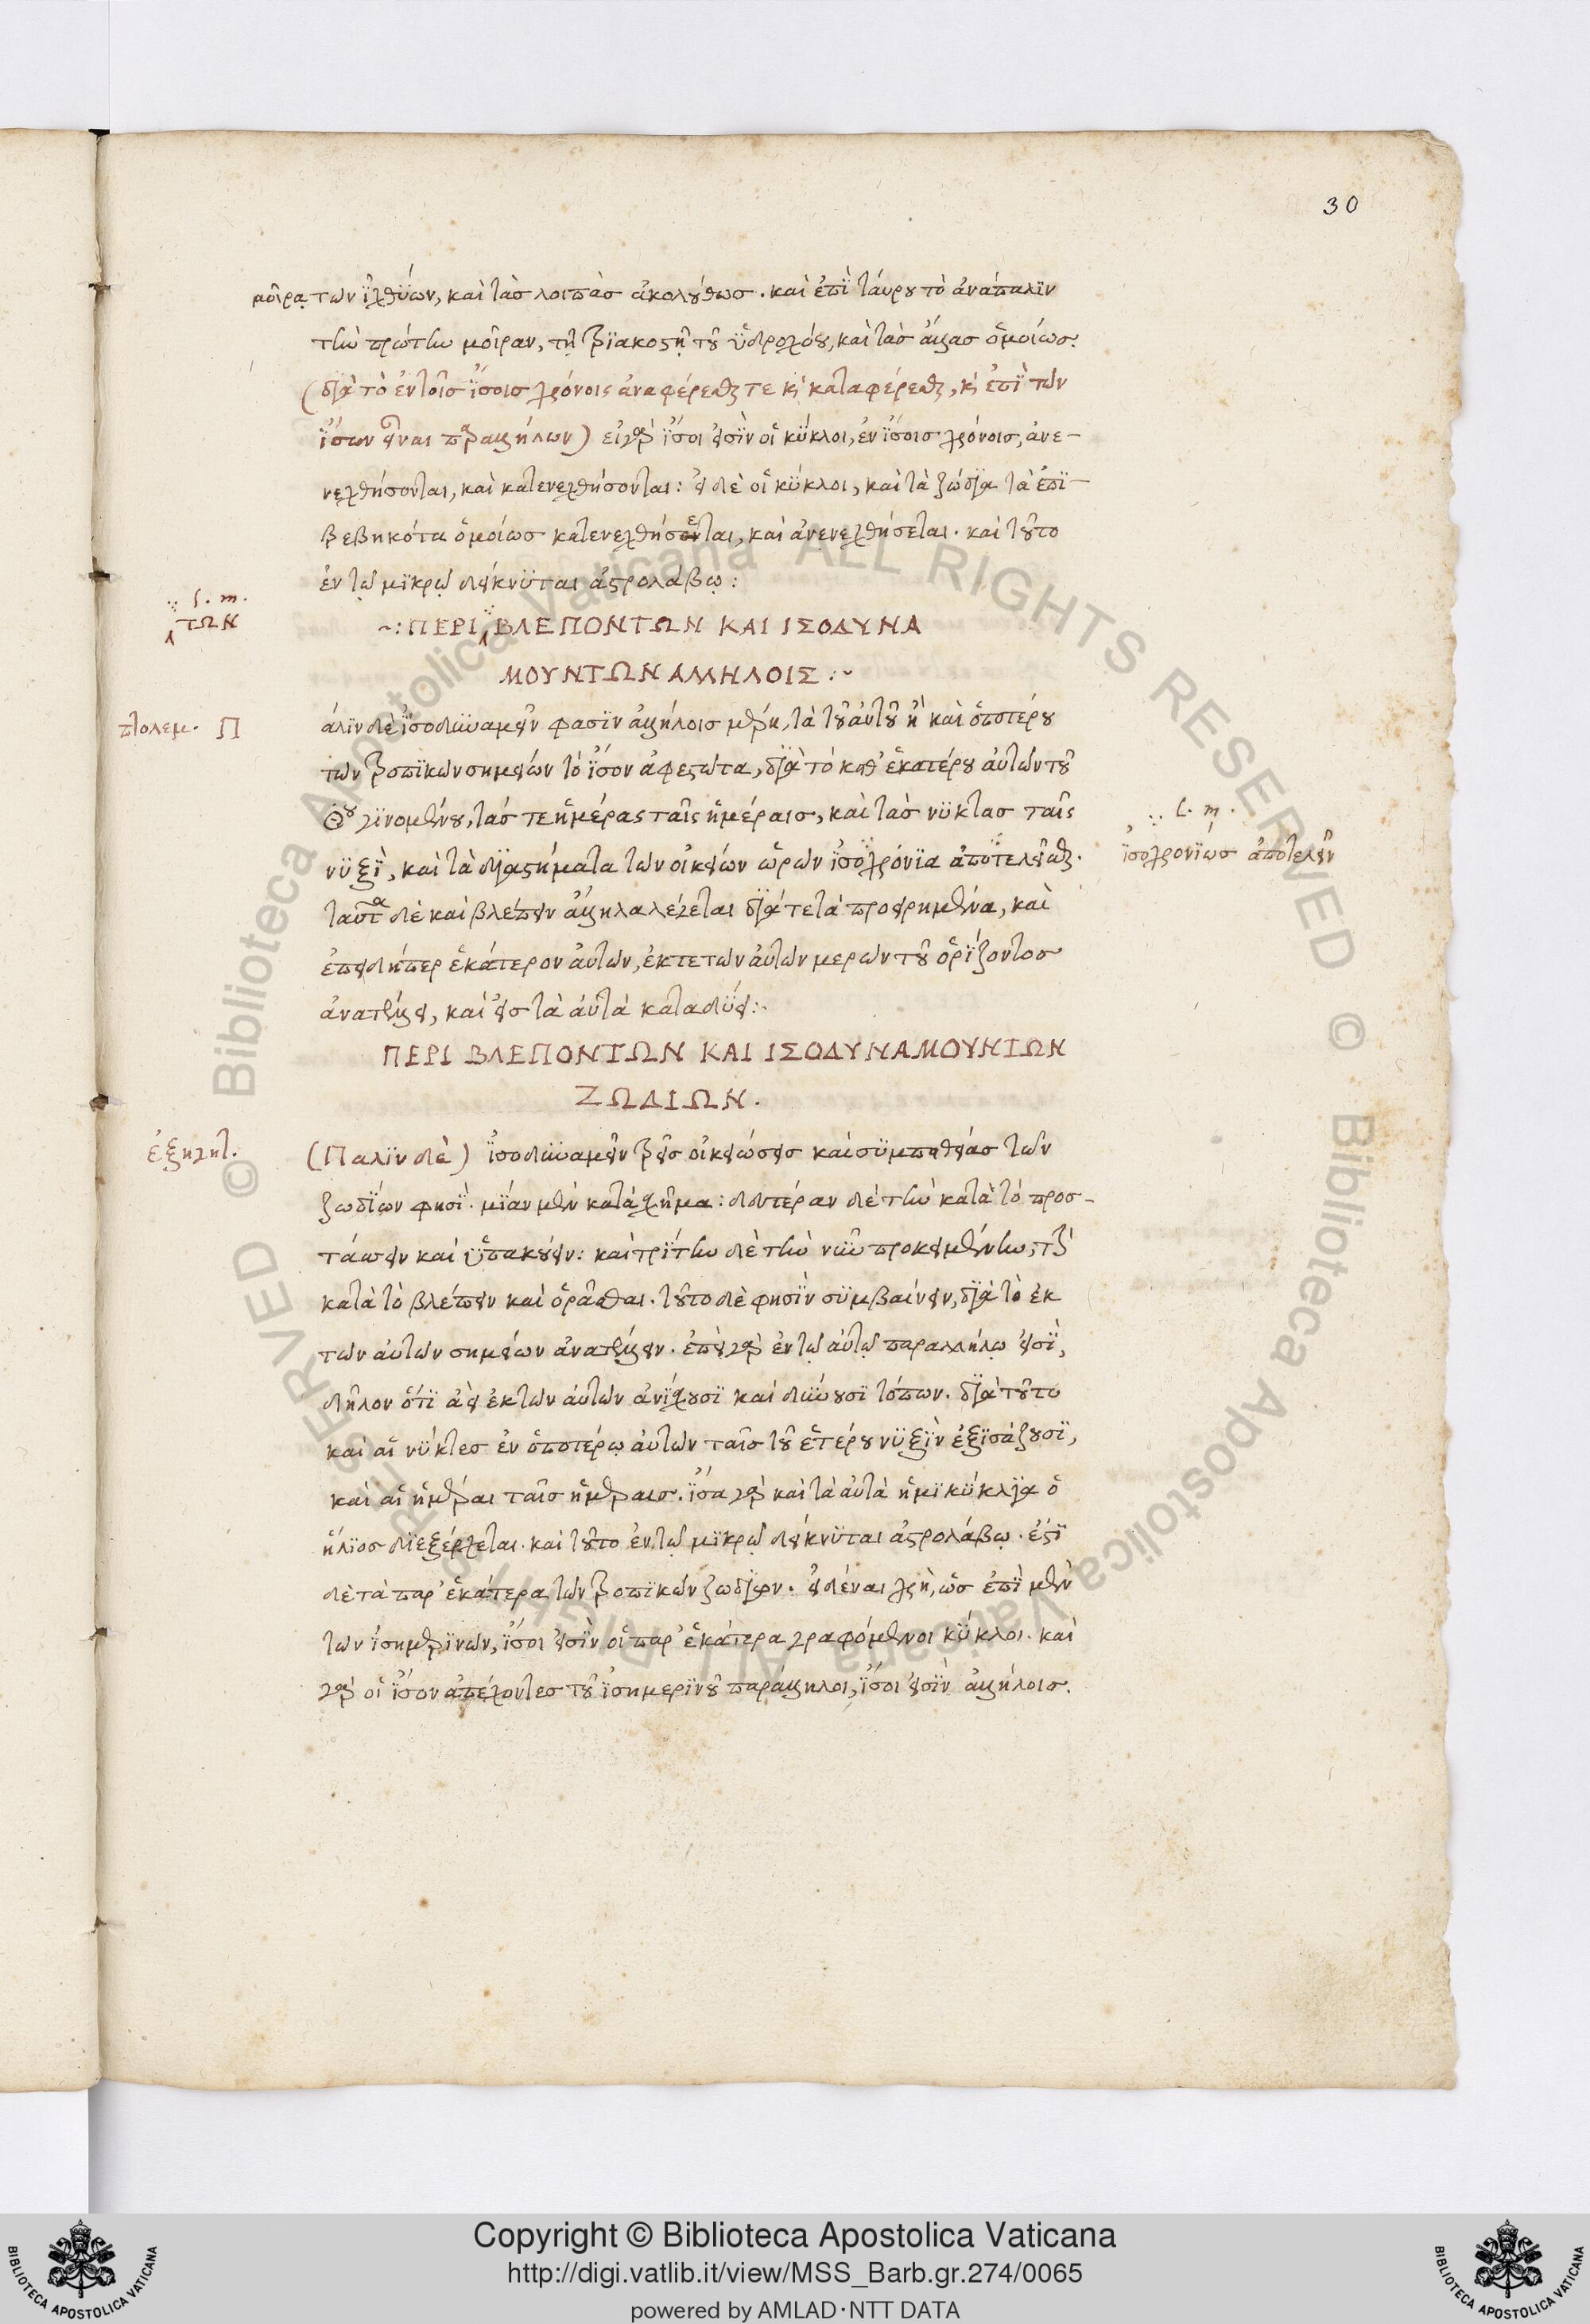 30
μοῖρᾳ τῶν ἰχθύων, καὶ τὰς λοιπὰς ἀκολούθως. καὶ ἐπὶ ταύρου τὸ ἀνάπαλιν
τὴν πρώτην μοῖραν, τῇ τριακοστῇ τοῦ ὑδροχόου, καὶ τὰς ἄλλας ὁμοίως.
(διὰ τὸ ἐν τοῖς ἴσοις χρόνοις ἀναφέρεσθαι τε καὶ καταφέρεσθαι, καὶ ἐπὶ τῶν
ἴσων εἶναι παραλλήλων) εἰ γὰρ ἴσοι εἰσὶν οἱ κύκλοι, ἐν ἴσοις χρόνοις, ἀνε-
νεχθήσονται, καὶ κατενεχθήσονται: εἰ δὲ οἱ κύκλοι, καὶ τὰ ζώδια τὰ ἐπι-
βεβηκότα ὁμοίως κατενεχθήσεται, καὶ ἀνενεχθήσεται. καὶ τοῦτο
ἐν τῷ μικρῷ δείκνυται ἀστρολάβῳ:
∴ f. m.
ΤΩΝ
~:ΠΕΡΙ ΒΛΕΠΟΝΤΩΝ ΚΑΙ ΙΣΟΔΥΝΑ
ΜΟΥΝΤΩΝ ΑΛΛΗΛΟΙΣ:~
πτολεμ. Π
άλιν δὲ ἰσοδυναμεῖν φασὶν ἀλλήλοις μέρη, τὰ τοῦ αὐτοῦ ἢ καὶ ὁποτέρου
τῶν τροπικῶν σημείων τὸ ἴσον ἀφεστῶτα, διὰ τὸ καθ' ἑκατέρου αὐτῶν τοῦ
☉ου γινομένου, τάς τε ἡμέρας ταῖς ἡμέραις, καὶ τὰς νύκτας ταῖς
νυξὶ, καὶ τὰ διαστήματα τῶν οἰκείων ὡρῶν ἰσοχρόνια ἀποτελεῖσθαι.
∴ f. m.
ἰσοχρονίως ἀποτελεῖν
ταῦτα δὲ καὶ βλέπειν ἄλληλα λέγεται διά τε τὰ προειρημένα, καὶ
ἐπειδήπερ ἑκάτερον αὐτῶν, ἔκ τε τῶν αὐτῶν μερῶν τοῦ ὁρίζοντος
ἀνατέλλει, καὶ εἰς τὰ αὐτὰ καταδύει:·
ΠΕΡΙ ΒΛΕΠΟΝΤΩΝ ΚΑΙ ΙΣΟΔΥΝΑΜΟΥΝΤΩΝ
ΖΩΔΙΩΝ.
ἐξηγητ.
(Παλιν δὲ) ἰσοδυναμεῖν τρεῖς οἰκειώσεις καὶ συμπαθείας τῶν
ζωδίων φησί. μίαν μὲν κατὰ σχῆμα: δευτέραν δὲ τὴν κατὰ τὸ προσ-
τάσσειν καὶ ὑπακούειν: καὶ τρίτην δὲ τὴν νῦν προκειμένην, τὴν
κατὰ τὸ βλέπειν καὶ ὁρᾶσθαι. τοῦτο δὲ φησὶν συμβαίνειν, διὰ τὸ ἐκ
τῶν αὐτῶν σημείων ἀνατέλλειν. ἐπεὶ γὰρ ἐν τῷ αὐτῷ παραλλήλῳ εἰσὶ,
δῆλον ὅτι ἀεὶ ἐκ τῶν αὐτῶν ἀνίσχουσι καὶ δύνουσι τόπων. διὰ τοῦτο
καὶ αἱ νύκτες ἐν ὁποτέρῳ αὐτῶν ταῖς τοῦ ἑτέρου νυξὶν ἐξισάζουσι,
καὶ αἱ ἡμέραι ταῖς ἡμέραις. ἴσα γὰρ καὶ τὰ αὐτὰ ἡμικύκλια ὁ
ἥλιος διεξέρχεται. καὶ τοῦτο ἐν τῷ μικρῷ δείκνυται ἀστρολάβῳ. ἔστι
δὲ τὰ παρ' ἑκάτερα τῶν τροπικῶν ζωδίων. εἰδέναι χρὴ, ὡς ἐπὶ μὲν
τῶν ἰσημερινῶν, ἴσοι εἰσὶν οἱ παρ' ἑκάτερα γραφόμενοι κύκλοι. καὶ
γὰρ οἱ ἴσον ἀπέχοντες τοῦ ἰσημερινοῦ παράλληλοι, ἴσοι εἰσὶν ἀλλήλοις.
© Biblioteca Apostolica Vaticana ALL RIGHTS RESERVED
© Biblioteca Apostolica Vaticana ALL RIGHTS RESERVED
BIBLIOTECA APOSTOLICA VATICANA
Copyright © Biblioteca Apostolica Vaticana
http://digi.vatlib.it/view/MSS_Barb.gr.274/0065
powered by AMLAD·NTT DATA
BIBLIOTECA APOSTOLICA VATICANA